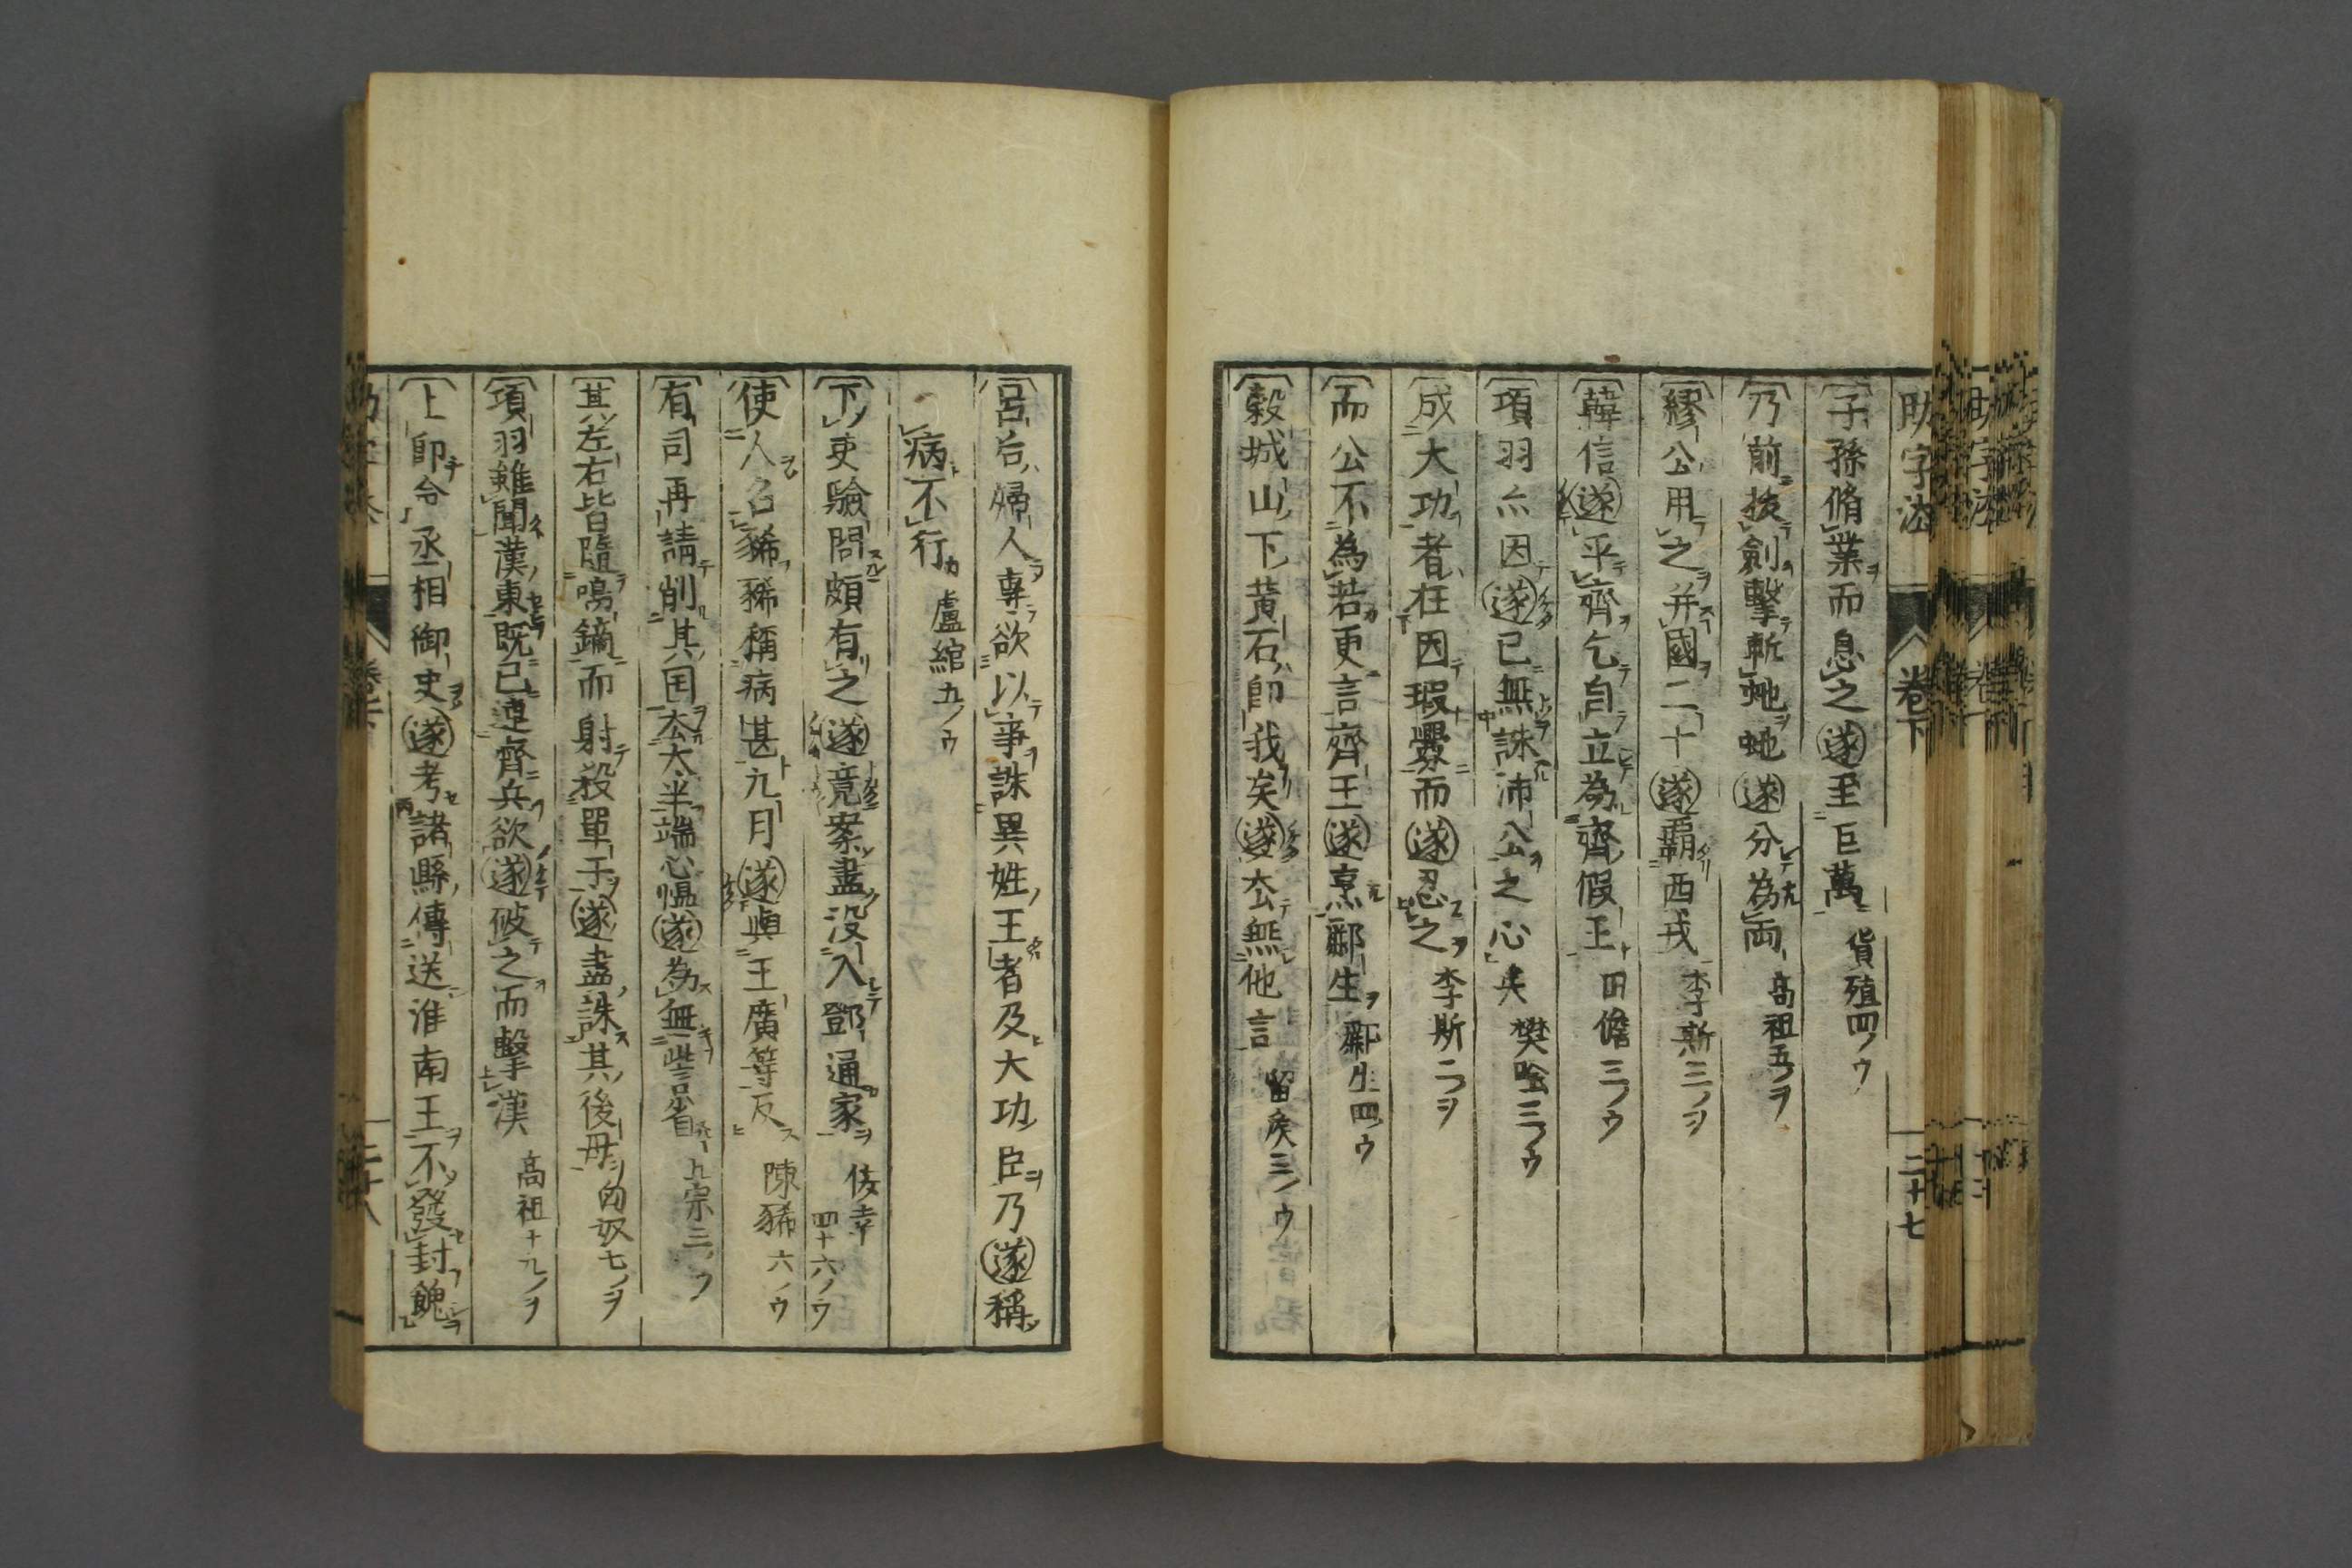 助字法 卷下 二十七
子孫脩業而息之遂至巨萬 貨殖四ノウ
乃前拔劍擊斬虵虵遂分為兩 高祖五ノヲ
繆公用之并國二十遂覇西戎 李斯三ノヲ
韓信遂平齊乞自立為齊假王 田儋三ノウ
項羽亦因遂已無誅沛公之心矣 樊噲三ノウ
成大功者在因瑕釁而遂忍之 李斯二ノヲ
而公不為若更言齊王遂烹酈生 酈生四ノウ
穀城山下黃石即我矣遂去無他言 留矦三ノウ
呂后婦人專欲以事誅異姓王者及大功臣乃遂稱
病不行 盧綰五ノウ
下吏驗問頗有之遂竟案盡没入鄧通家 佞幸四十六ノウ
使人召豨豨稱病甚九月遂與王廣等反 陳豨六ノウ
有司再請削其囯去太半端心慍遂為無訾省 五宗三ノヲ
其左右皆隨鳴鏑而射殺單于遂盡誅其後母 匈奴七ノヲ
項羽雖聞漢東既已連齊兵欲遂破之而擊漢 高祖十九ノヲ
上即令丞相御史遂考諸縣傳送淮南王不發封餽